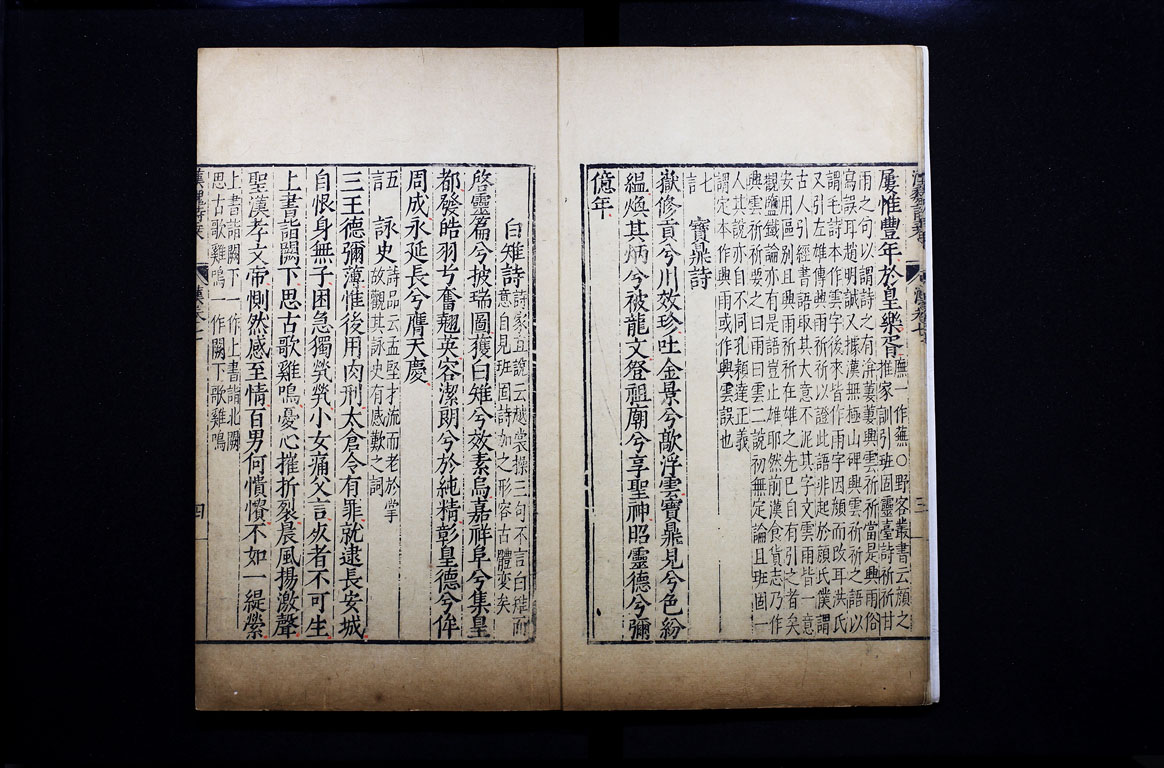 屢惟豐年於皇樂胥
廡一作蕪〇野客叢書云顔之
推家訓引班固靈臺詩祈祈甘
雨之句以謂詩之有渰萋萋興雲祈祈當是興雨俗
寫誤耳趙明誠又據漢無極山碑興雲祈祈之語以
謂毛詩本作雲字後來皆作雨字因顔而改耳洪氏
又引左雄傳興雨祈祈以證此語非起於顔氏僕謂
古人引經書語取其大意不泥其字文雲雨皆一意
安用區別且興雨祈祈在雄之先已自有引之者矣
觀鹽鐵論亦有是語豈止雄耶然前漢食貨志乃作
興雲祈祈要之曰雨曰雲二說初無定論且班固一
人其說亦自不同孔穎達正義
謂定本作興雨或作興雲誤也
七言 寶鼎詩
嶽修貢兮川效珍吐金景兮歊浮雲寶鼎見兮色紛
縕煥其炳兮被龍文登祖廟兮享聖神昭靈德兮彌
億年
白雉詩
詩家直說云越裳操三句不言白雉而
意自見班固詩如之形容古體變矣
啓靈篇兮披瑞圖獲白雉兮效素烏嘉祥阜兮集皇
都發皓羽兮奮翹英容潔朗兮於純精彰皇德兮侔
周成永延長兮膺天慶
五言 詠史
詩品云孟堅才流而老於掌
故觀其詠史有感歎之詞
三王德彌薄惟後用肉刑太倉令有罪就逮長安城
自恨身無子困急獨煢煢小女痛父言死者不可生
上書詣闕下思古歌雞鳴憂心摧折裂晨風揚激聲
聖漢孝文帝惻然感至情百男何憒憒不如一緹縈
上書詣闕下一作上書詣北闕
思古歌雞鳴一作闕下歌雞鳴